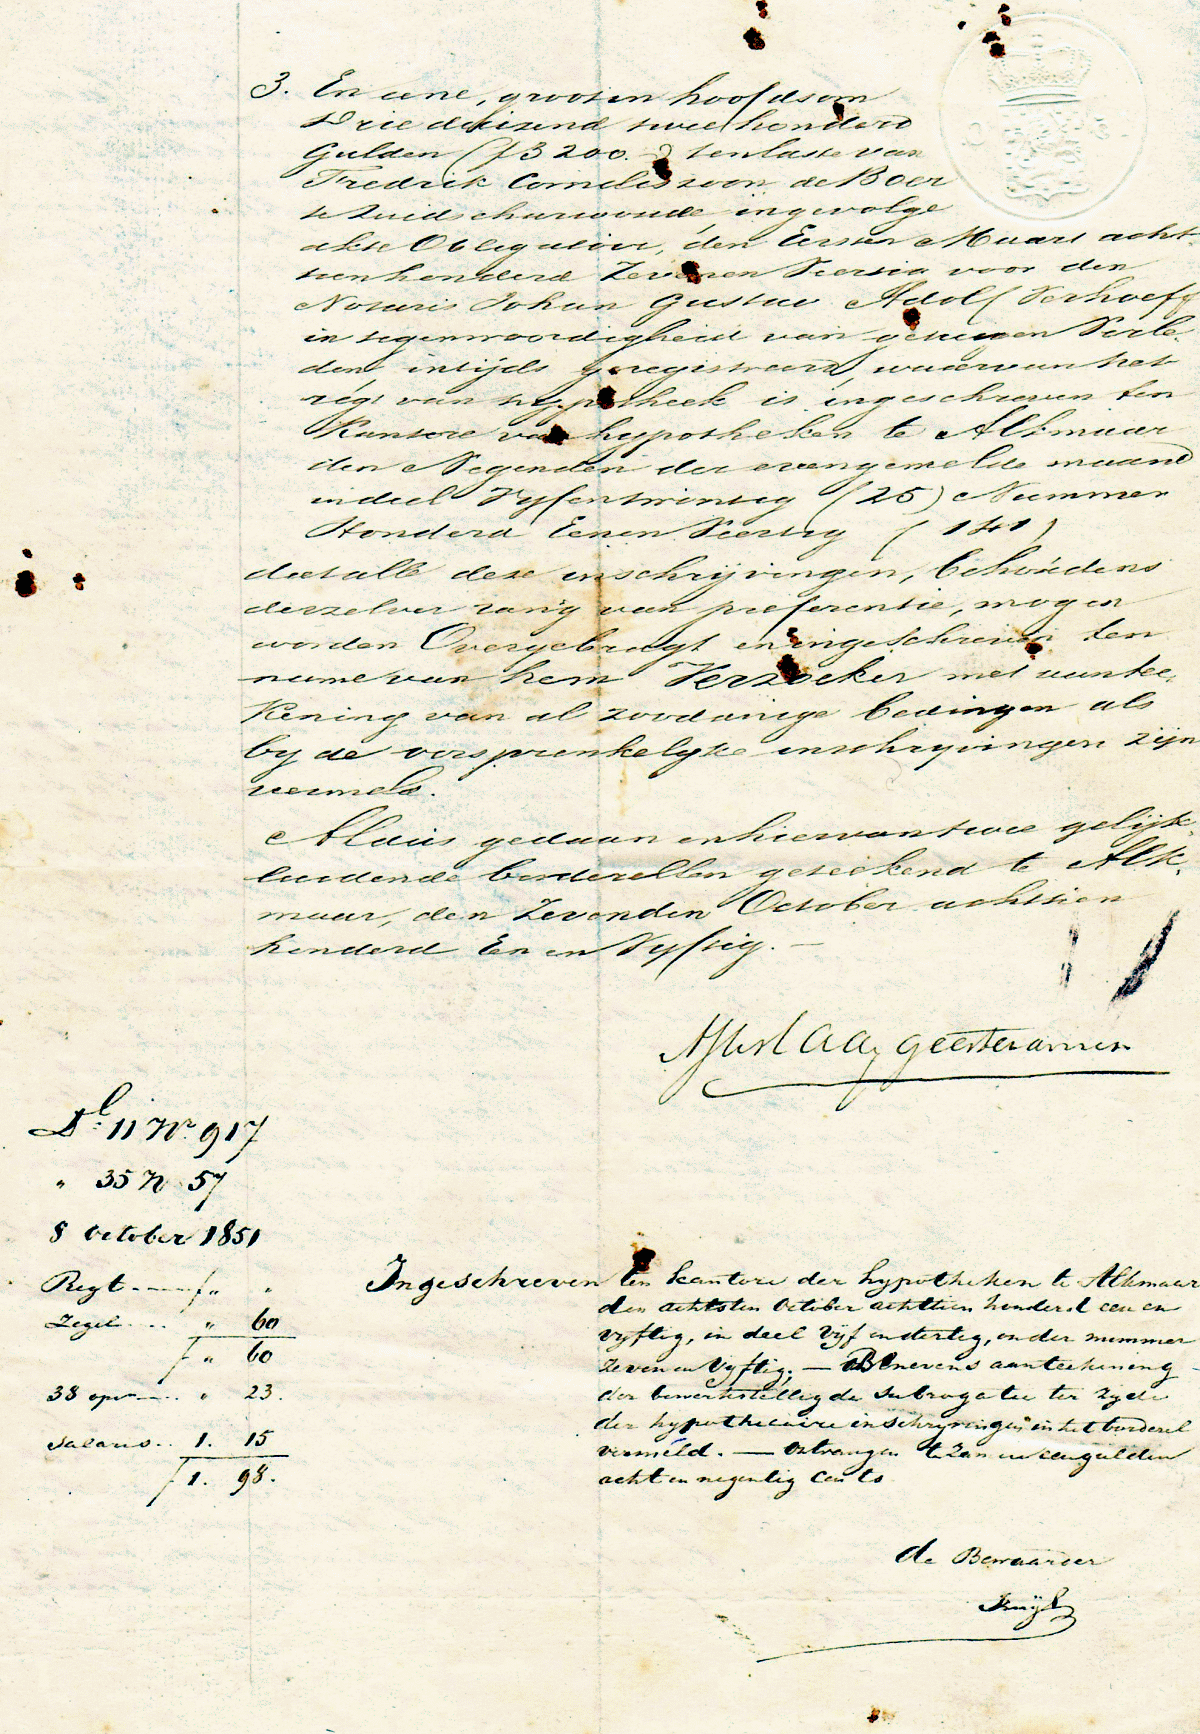 3. En eene, grooten hoofdsom
Drie duizend twee honderd
Gulden (ƒ3200.-) ten laste van
Fredrik Corneliszoon de Boer
te Zuidscharwoude, ingevolge
akte Obligatoir, den Eersten Maart acht-
tienhonderd Zeven en Veertig voor den
Notaris Johan Gustav Adolf Verhoeff
in tegenwoordigheid van getuigen Verle-
den, intijds geregistreerd, waarvan het
regt van hypotheek is ingeschreven ten
Kantore van hypotheken te Alkmaar
den Negenden der evengemelde maand
in deel Vyfentwintig (25) Nummer
Honderd Eenen Veertig (141)
dat alle deze inschrijvingen, behoudens
derzelver rang van preferentie, mogen
worden Overgebragt en ingeschreven ten
name van hem Verzoeker met aantee-
kening van al zoodanige bedingen als
by de oorspronkelyke inschryvingen zijn
vermeld.
Aldus gedaan en hiervan twee gelijk-
luidende borderellen geteekend te Alk-
maar, den Zevenden October achttien
honderd Een en Vyftig. -
Geesteranus
Dl. 11 Nr. 917
" 35 N 57
8 October 1851
Regt ---- ƒ " "
Zegel .... " 60
ƒ " 60
38 opc .... " 23.
Salaris .. 1. 15
ƒ 1. 98.
Ingeschreven ten kantore der hypotheken te Alkmaar
den achtsten October achttien honderd een en
vyftig, in deel Vijf en dertig, onder nummer
Zeven en Vyftig; — Benevens aanteekening
der bewerkstelligde subrogatie ter zyde
der hypothecaire inschryvingen in het borderel
vermeld. — Ontvangen te Zamen een gulden
acht en negentig Cents
de Bewaarder